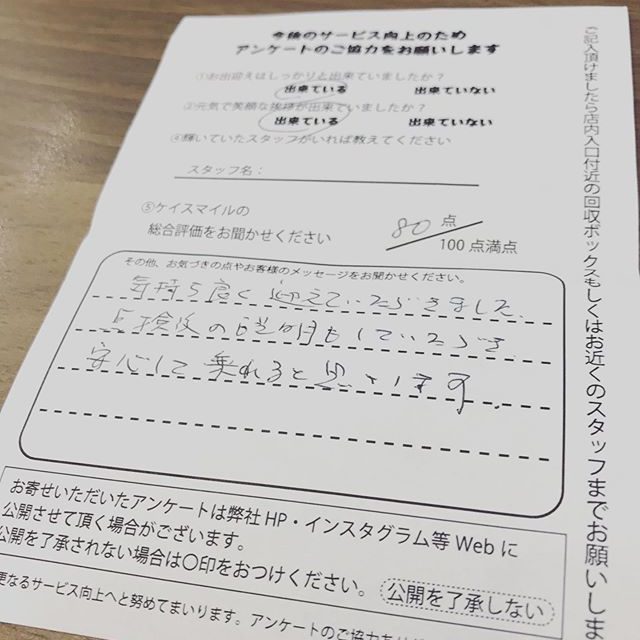 今後のサービス向上のため
アンケートのご協力をお願いします
①お出迎えはしっかりと出来ていましたか？
出来ている 出来ていない
③元気で笑顔な挨拶が出来ていましたか？
出来ている 出来ていない
④輝いていたスタッフがいれば教えてください
スタッフ名：
⑤ケイスマイルの
総合評価をお聞かせください
80 点
100 点満点
その他、お気づきの点やお客様のメッセージをお聞かせください。
気持ち良く迎えていただきました。
点検後の説明もしていただき、
安心して乗れると思います。
お寄せいただいたアンケートは弊社 HP・インスタグラム等 Web に
公開させて頂く場合がございます。
公開を了承されない場合は〇印をおつけください。 公開を了承しない
更なるサービス向上へと努めてまいります。アンケートのご協力あり
ご記入頂けましたら店内入口付近の回収ボックスもしくはお近くのスタッフまでお願いしま